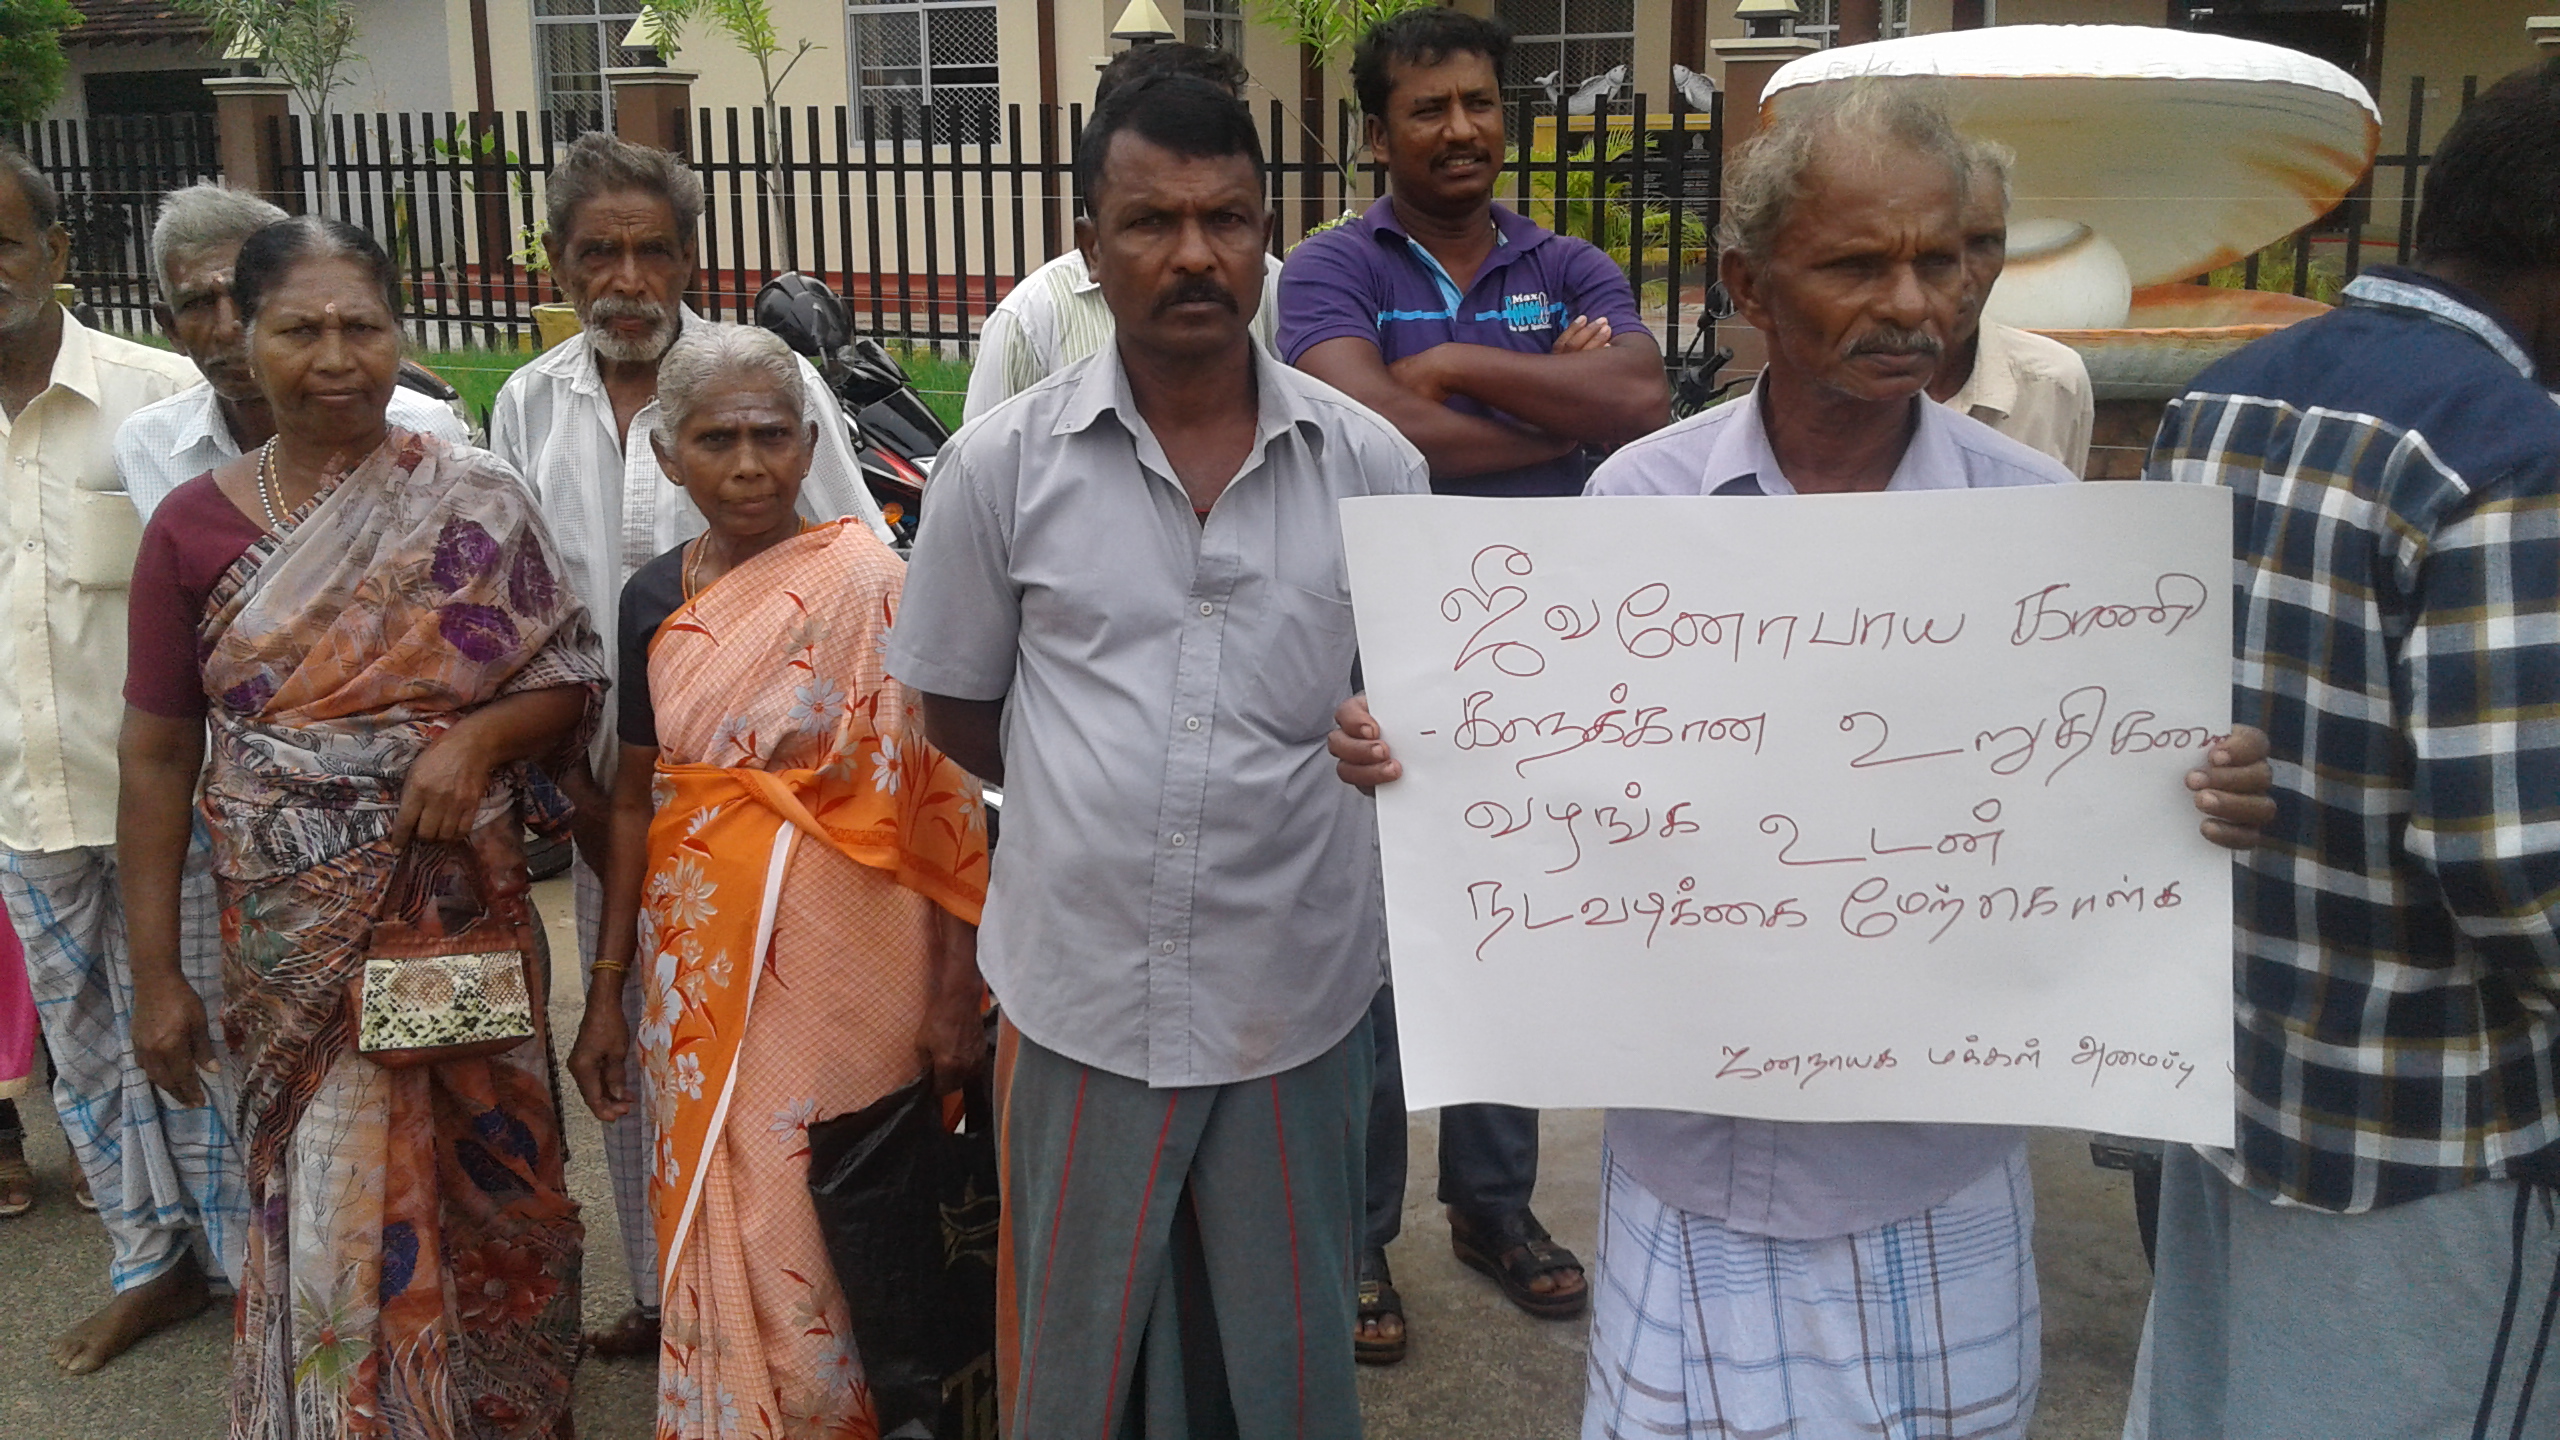 Max
ஜீவனோபாய காணி
-களுக்கான உறுதிகளை
வழங்க உடன்
நடவடிக்கை மேற்கொள்க
ஜனநாயக மக்கள் அமைப்பு